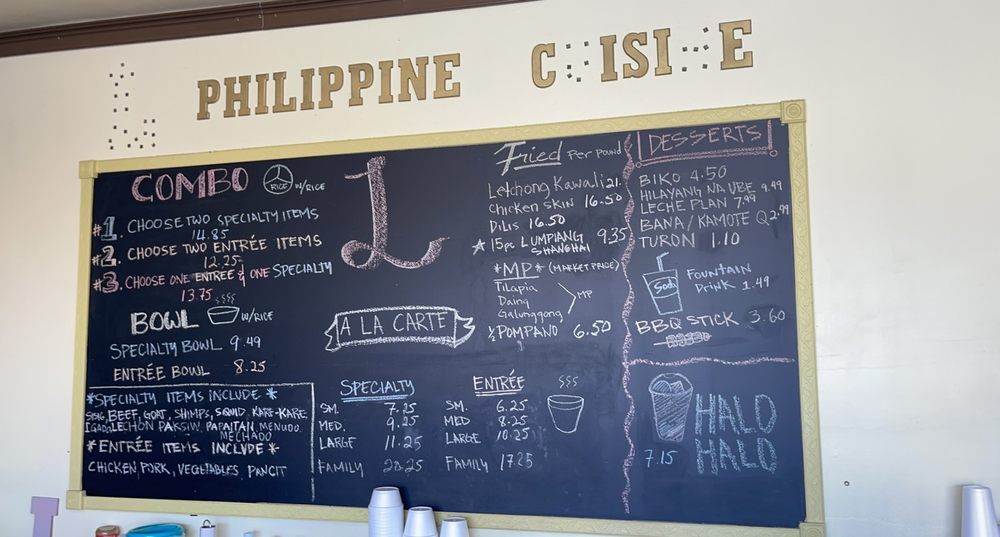 PHILIPPINE C ISI E
COMBO RICE W/RICE
#1. CHOOSE TWO SPECIALTY ITEMS
14.85
#2. CHOOSE TWO ENTRÉE ITEMS
12.25
#3. CHOOSE ONE ENTREE & ONE SPECIALTY
13.75
BOWL W/RICE
SPECIALTY BOWL 9.49
ENTRÉE BOWL 8.25
*SPECIALTY ITEMS INCLUDE *
SISIG, BEEF, GOAT, SHIMPS, SQUID, KARE-KARE
IGADO LECHON PAKSIW, PAPAITAN, MENUDO,
MECHADO
*ENTRÉE ITEMS INCLUDE *
CHICKEN PORK, VEGETABLES, PANCIT
L
A LA CARTE
SPECIALTY
SM. 7.25
MED. 9.25
LARGE 11.25
FAMILY 20.25
ENTRÉE
SM. 6.25
MED 8.25
LARGE 10.25
FAMILY 17.25
Fried Per Pound
Letchong Kawali 21.
Chicken SKIN 16.50
DILIS 16.50
15pc LUMPIANG SHANGHAI 9.35
*MP* (MARKET PRICE)
Tilapia
Daing MP
Galunggong
½ POMPANO 6.50
DESSERTS
BIKO 4.50
HILAYANG NA UBE 9.49
LECHE PLAN 7.99
BANA/KAMOTE Q 2.99
TURON 1.10
Soda FOUNTAIN
DRINK 1.49
BBQ STICK 3.60
HALO
HALO
7.15